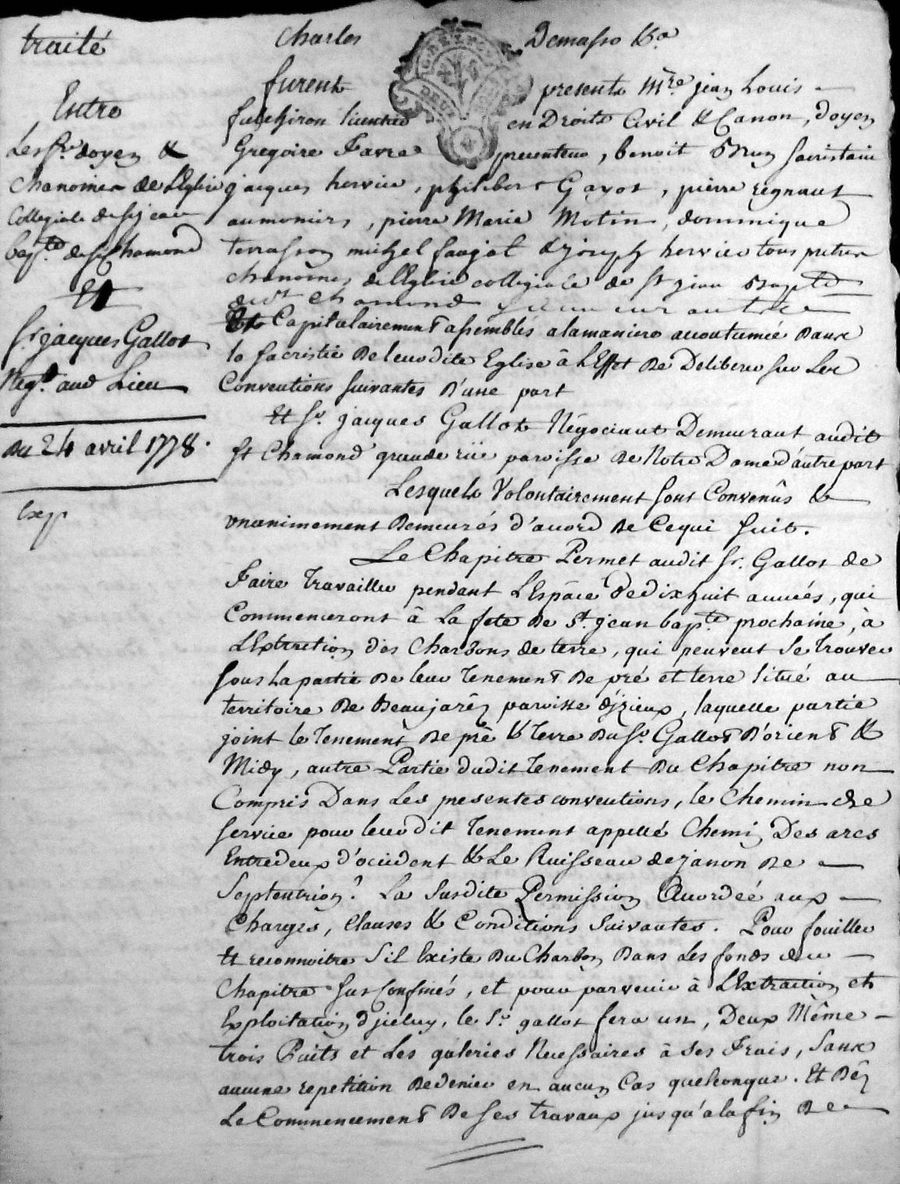 traité
Entre
Les srs doyen &
chanoines de L'Eglise
Collegiale de st jean
bapte de st Chamond
Et
sr jacques Gallot
Negt. aud Lieu
du 24 avril 1778.
Exp
Charles Demasso
furent presents Mre jean Louis
licentié en Droits Civil & Canon, doyen
Gregoire Favre, benoit Brun Sacristain
jacques hervier, philibert Gayot, pierre regnaut
aumonier, pierre Marie Motin, dominique
terrasson michel faujol & joseph hervier tous pretres
chanoines de L'Eglise collegiale de St jean Bapte
de st Chamond
Capitulairement assemblés a la maniere accoutumée dans
la sacristie de leurdite Eglise à L'Effet de Deliberer sur Les
Conventions suivantes d'une part
Et sr. jacques Gallot Négociant Demeurant audit
st Chamond grande rüe paroisse de Notre Dame d'autre part
Lesquels Volontairement sont Convenûs &
unanimement demeurés d'acord de Cequi suit.
Le Chapitre Permet audit sr. Gallot de
Faire travailler pendant L'Espace de dix huit années, qui
Commenceront à La fete de st. jean bapte prochaine, à
L'Extraction des Charbons de terre, qui peuvent se trouver
sous la partie de leur tenement de pré et terre situé au
territoire de Beaujarêz paroisse d'jzieux, laquelle partie
joint le tenement de pré & terre du sr. Gallot d'orient &
Midy, autre Partie dudit tenement du Chapitre non
Compris Dans Les presentes conventions, le Chemin de
service pour leurdit tenement appellé Chemin Des arcs
Entredeux d'occident & Le Ruisseau de janon de
Septentrion. La susdite Permission Acordeé aux
Charges, Clauses & Conditions suivantes. Pour fouiller
et reconnoitre s'il Existe du Charbon Dans Les fonds du
Chapitre sus Confinés, et pour parvenir à L'Extraction et
Exploitation d'jcelluy, le sr. gallot fera un, Deux Même
trois Puits et Les galeries Necessaires à ses Frais, Sans
aucune repetition de denier en aucun Cas quelconque. Et Dès
Le Commencement de ses travaux jusqu'a la fin de